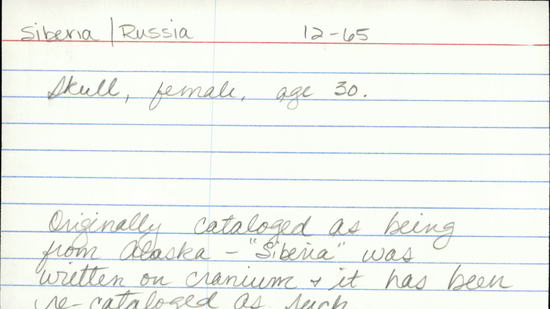 Siberia/Russia 12-65
Skull, female, age 30.
Originally cataloged as being
from Alaska - "Siberia" was
written on cranium + it has been
re-cataloged as such